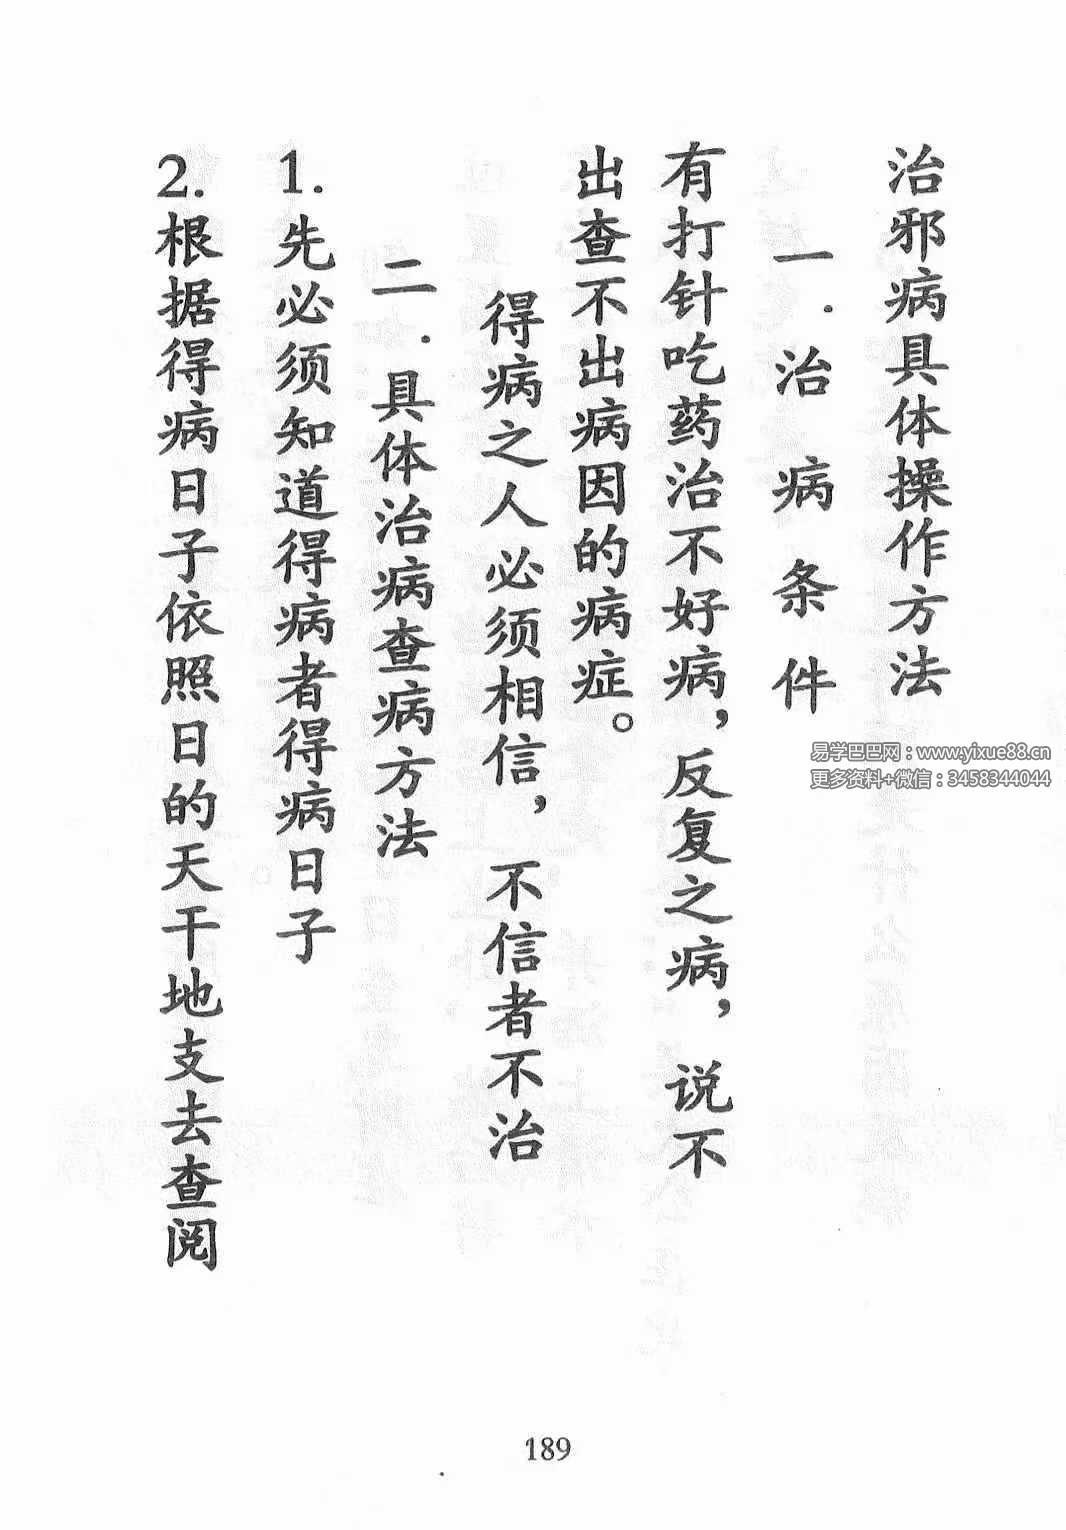 治邪病具体操作方法
一.治病条件
有打针吃药治不好病，反复之病，说不
出查不出病因的病症。
得病之人必须相信，不信者不治
二.具体治病查病方法
1.先必须知道得病者得病日子
2.根据得病日子依照日的天干地支去查阅
易学巴巴网：www.yixue88.cn
更多资料+微信：3458344044
189